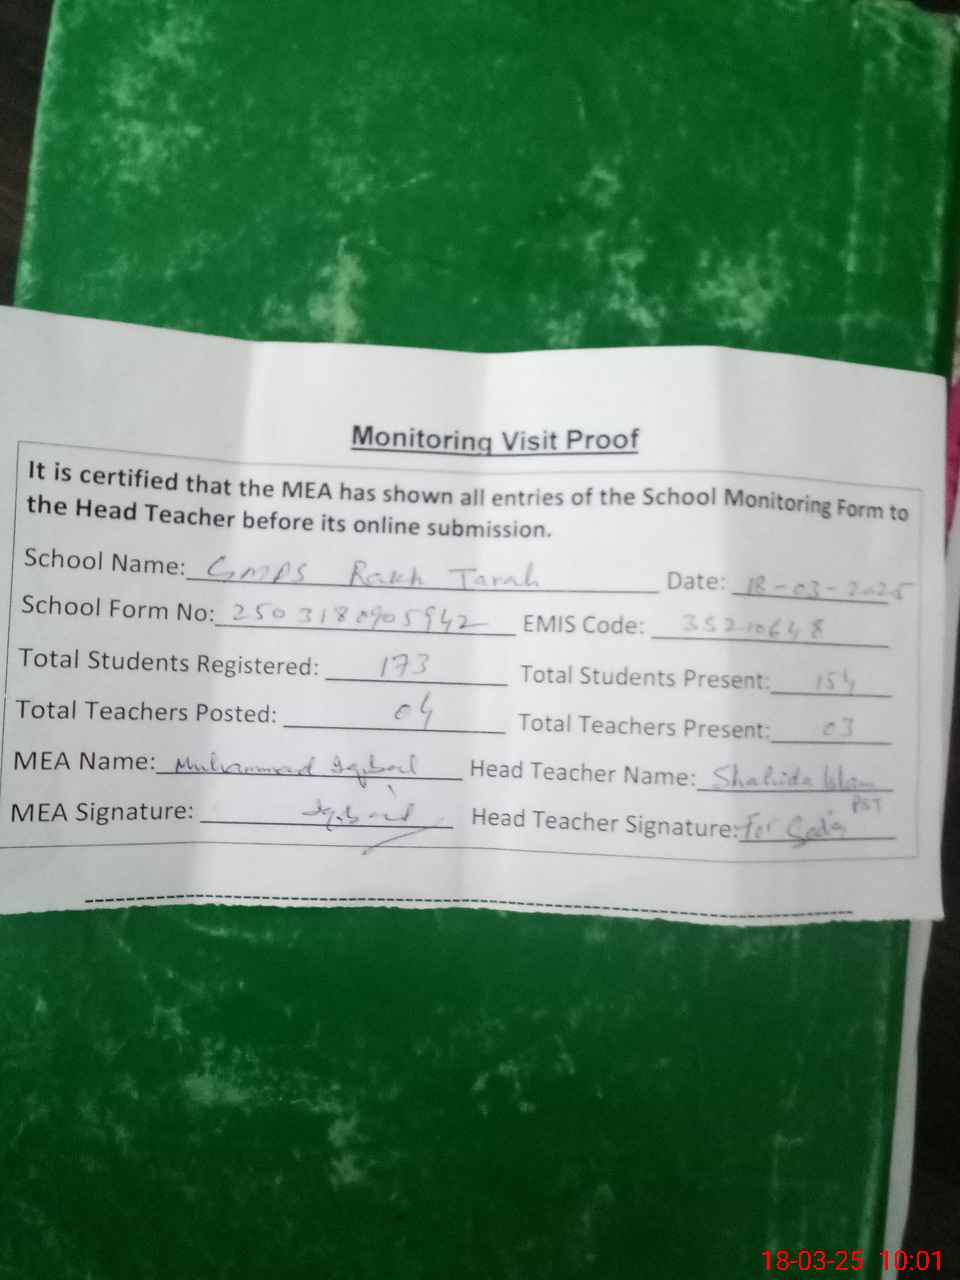 Monitoring Visit Proof
It is certified that the MEA has shown all entries of the School Monitoring Form to
the Head Teacher before its online submission.
School Name: GMPS Rakh Tarah Date: 18-03-2025
School Form No: 2503180905942 EMIS Code: 35210648
Total Students Registered: 173 Total Students Present: 154
Total Teachers Posted: 04 Total Teachers Present: 03
MEA Name: Muhammad Iqbal Head Teacher Name: Shahida Islam
PST
MEA Signature: Iqbal Head Teacher Signature: For
18-03-25 10:01